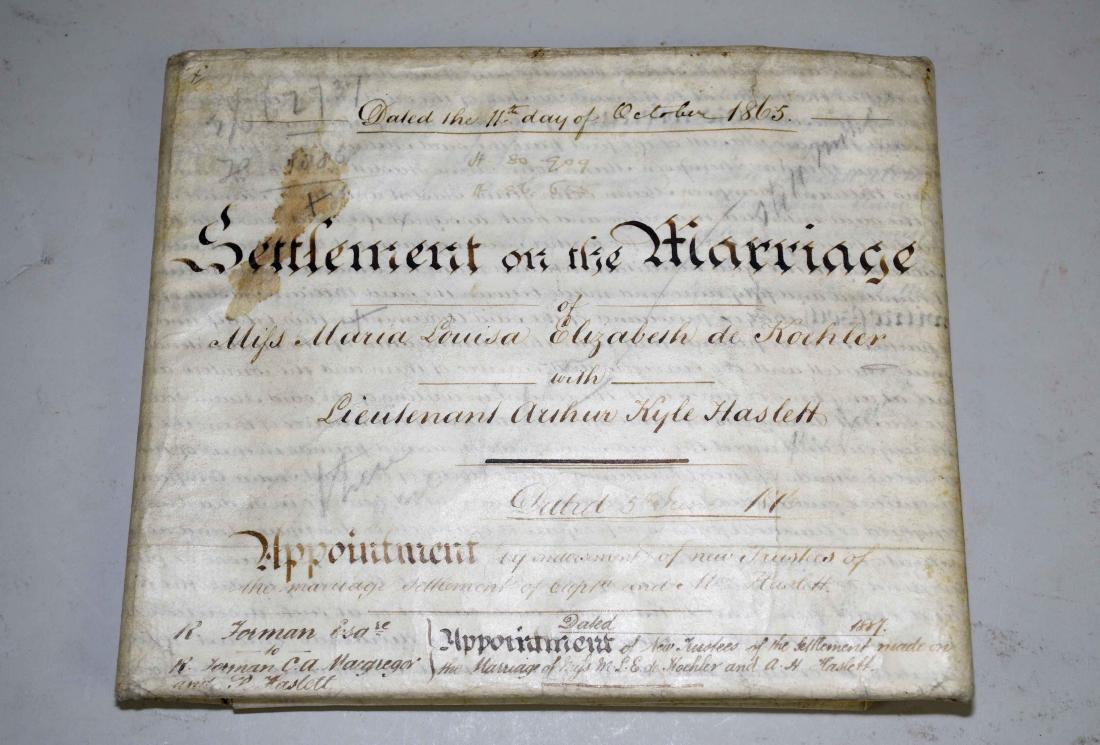 Dated the 11th day of October 1865.
Settlement on the Marriage
of
Miss Maria Louisa Elizabeth de Koehler
with
Lieutenant Arthur Kyle Haslett
Dated 5th
Appointment by indorsement of new Trustees of
the marriage settlement of Captn and Mrs Haslett.
R Forman Esqre
to
R. Forman C.A. Macgregor
and P. Haslett
Dated 1887.
Appointment of New Trustees of the Settlement made on
the Marriage of Miss M. L. E. de Koehler and A. K. Haslett.